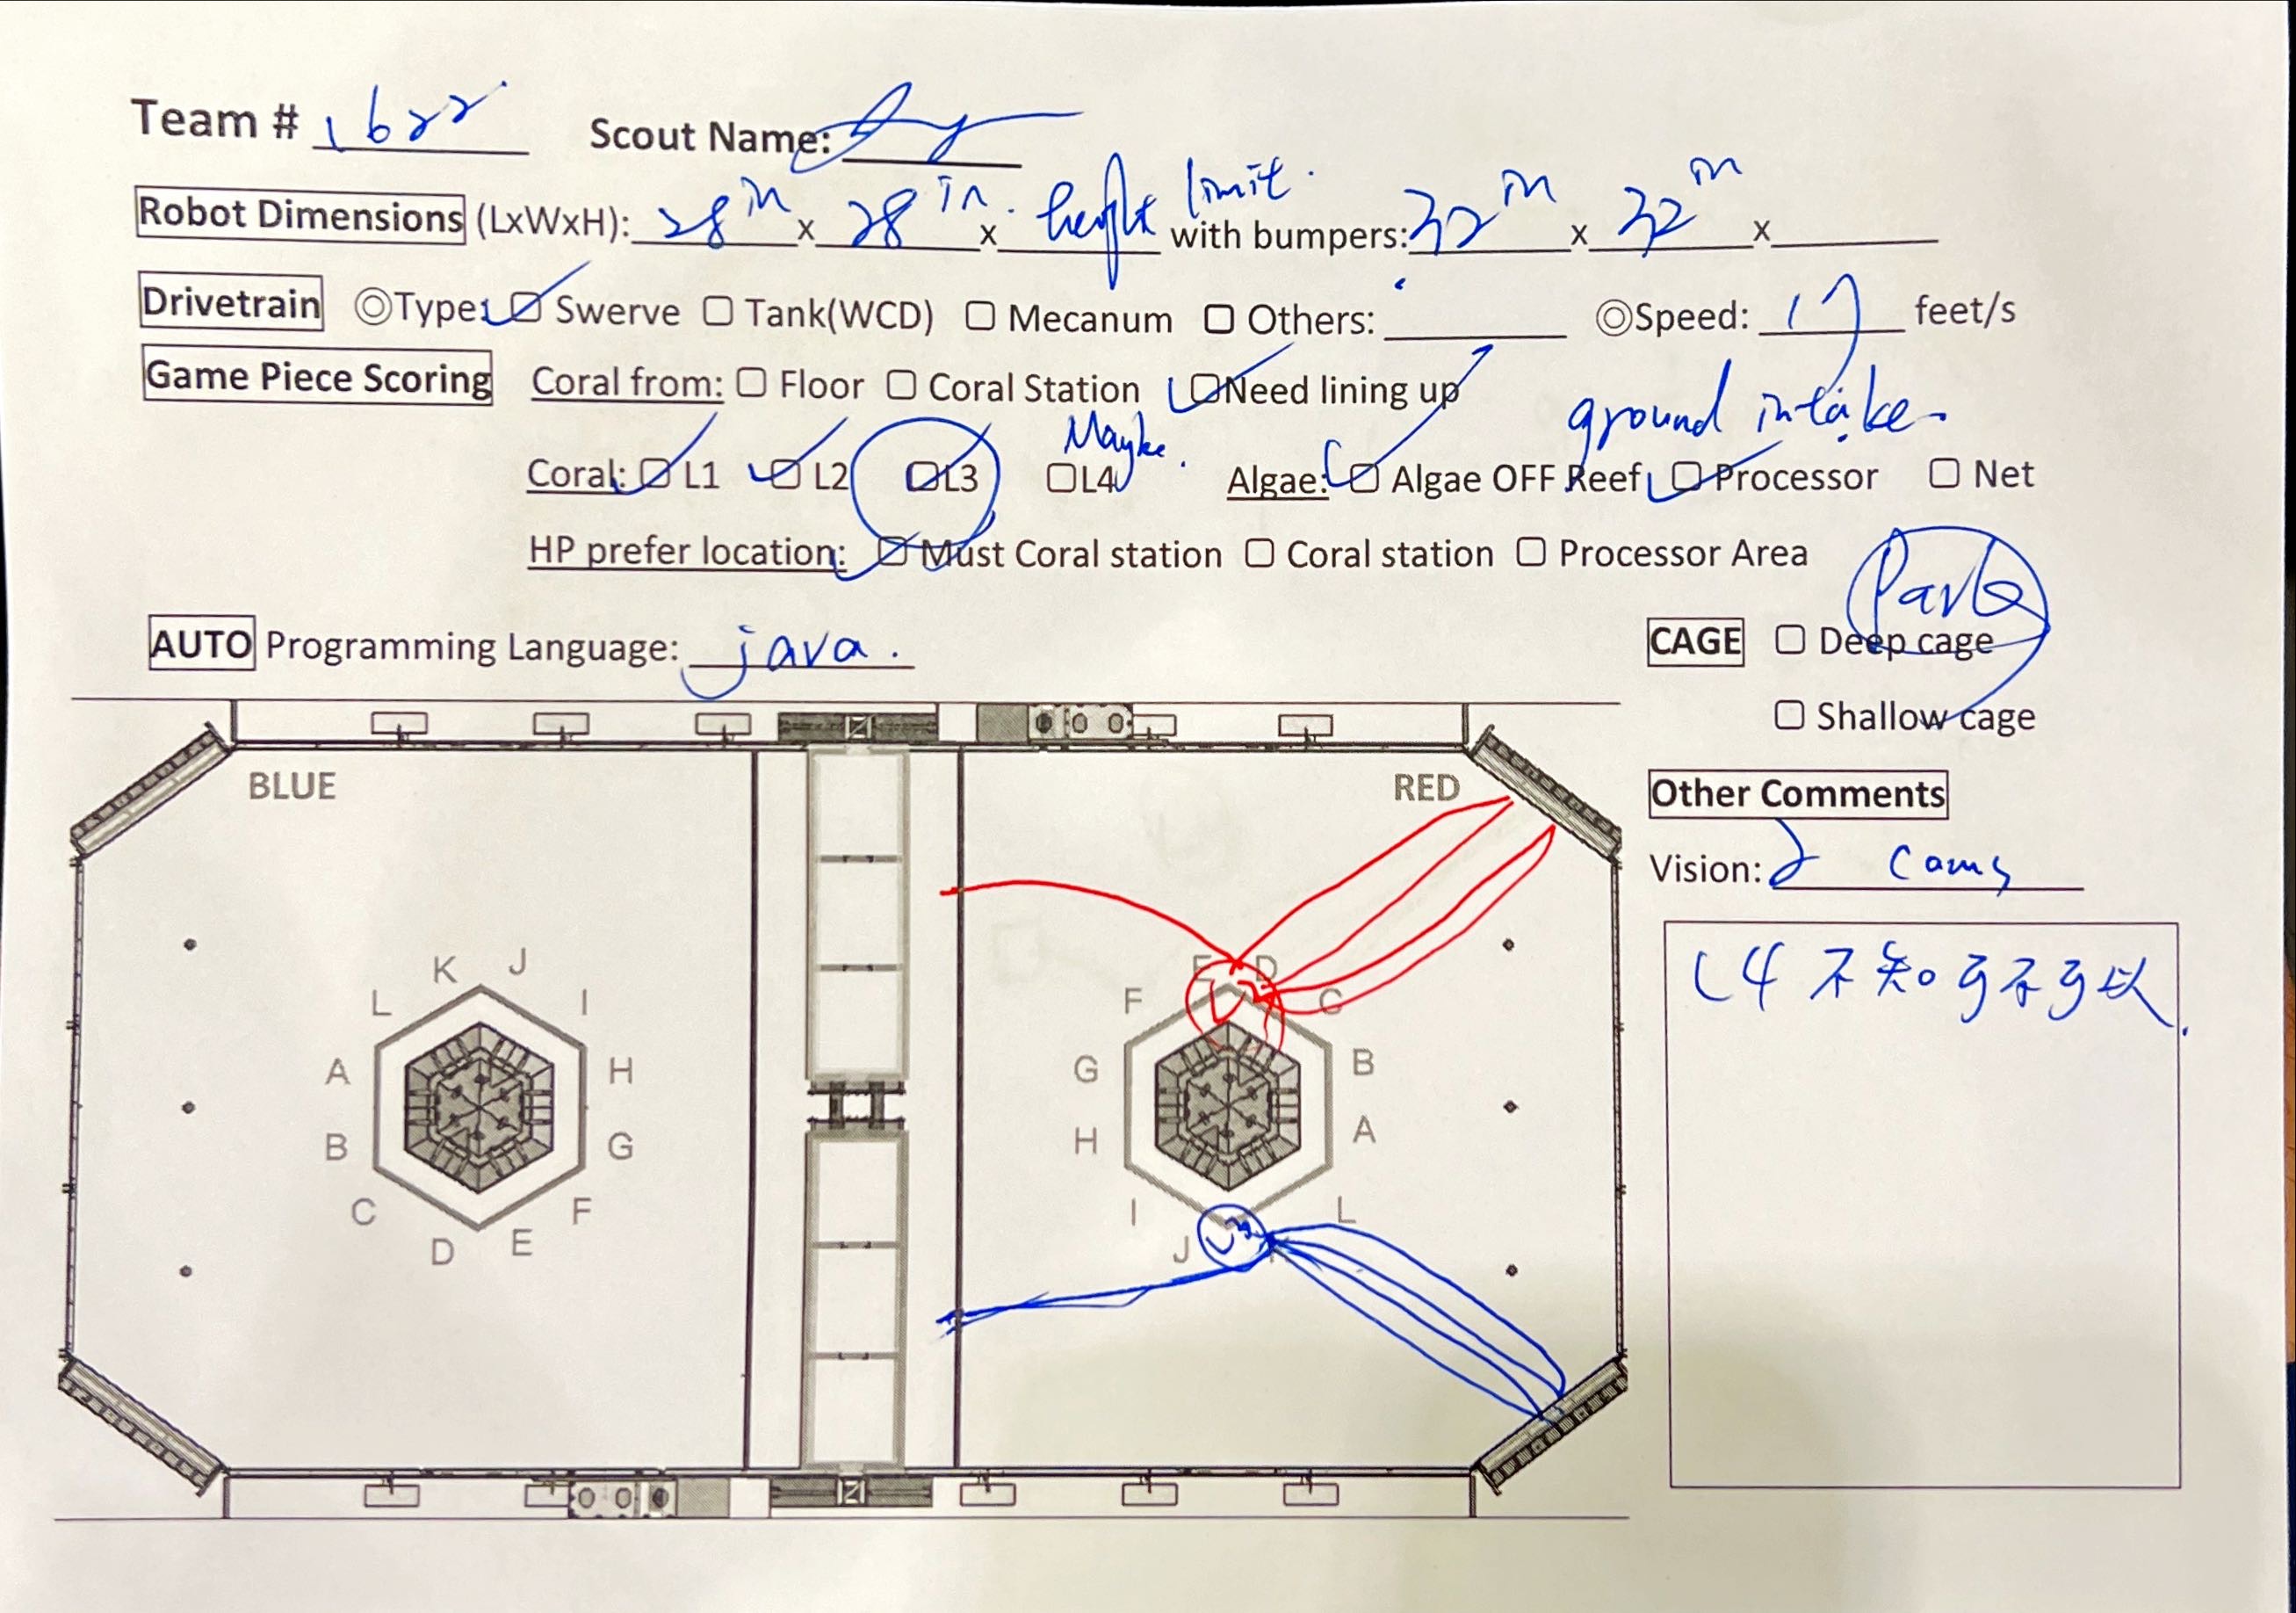 Team # 1622 Scout Name:
Robot Dimensions (LxWxH): 28 in x 28 in x height limit. with bumpers: 32 in x 32 in x
Drivetrain ◎Type: ☑ Swerve ☐ Tank(WCD) ☐ Mecanum ☐ Others: ◎Speed: 17 feet/s
Game Piece Scoring Coral from: ☐ Floor ☐ Coral Station ☑ Need lining up
ground intake.
Maybe.
Coral: ☑ L1 ☑ L2 ☑ L3 ☐ L4 Algae: ☑ Algae OFF Reef ☑ Processor ☐ Net
HP prefer location: ☑ Must Coral station ☐ Coral station ☐ Processor Area
Park
AUTO Programming Language: java.
CAGE ☐ Deep cage
☐ Shallow cage
BLUE RED
Other Comments
Vision: 2 cams
L4 不知可不可以.
K J
L I
A H
B G
C F
D E
E D
F C
G B
H A
I L
J K